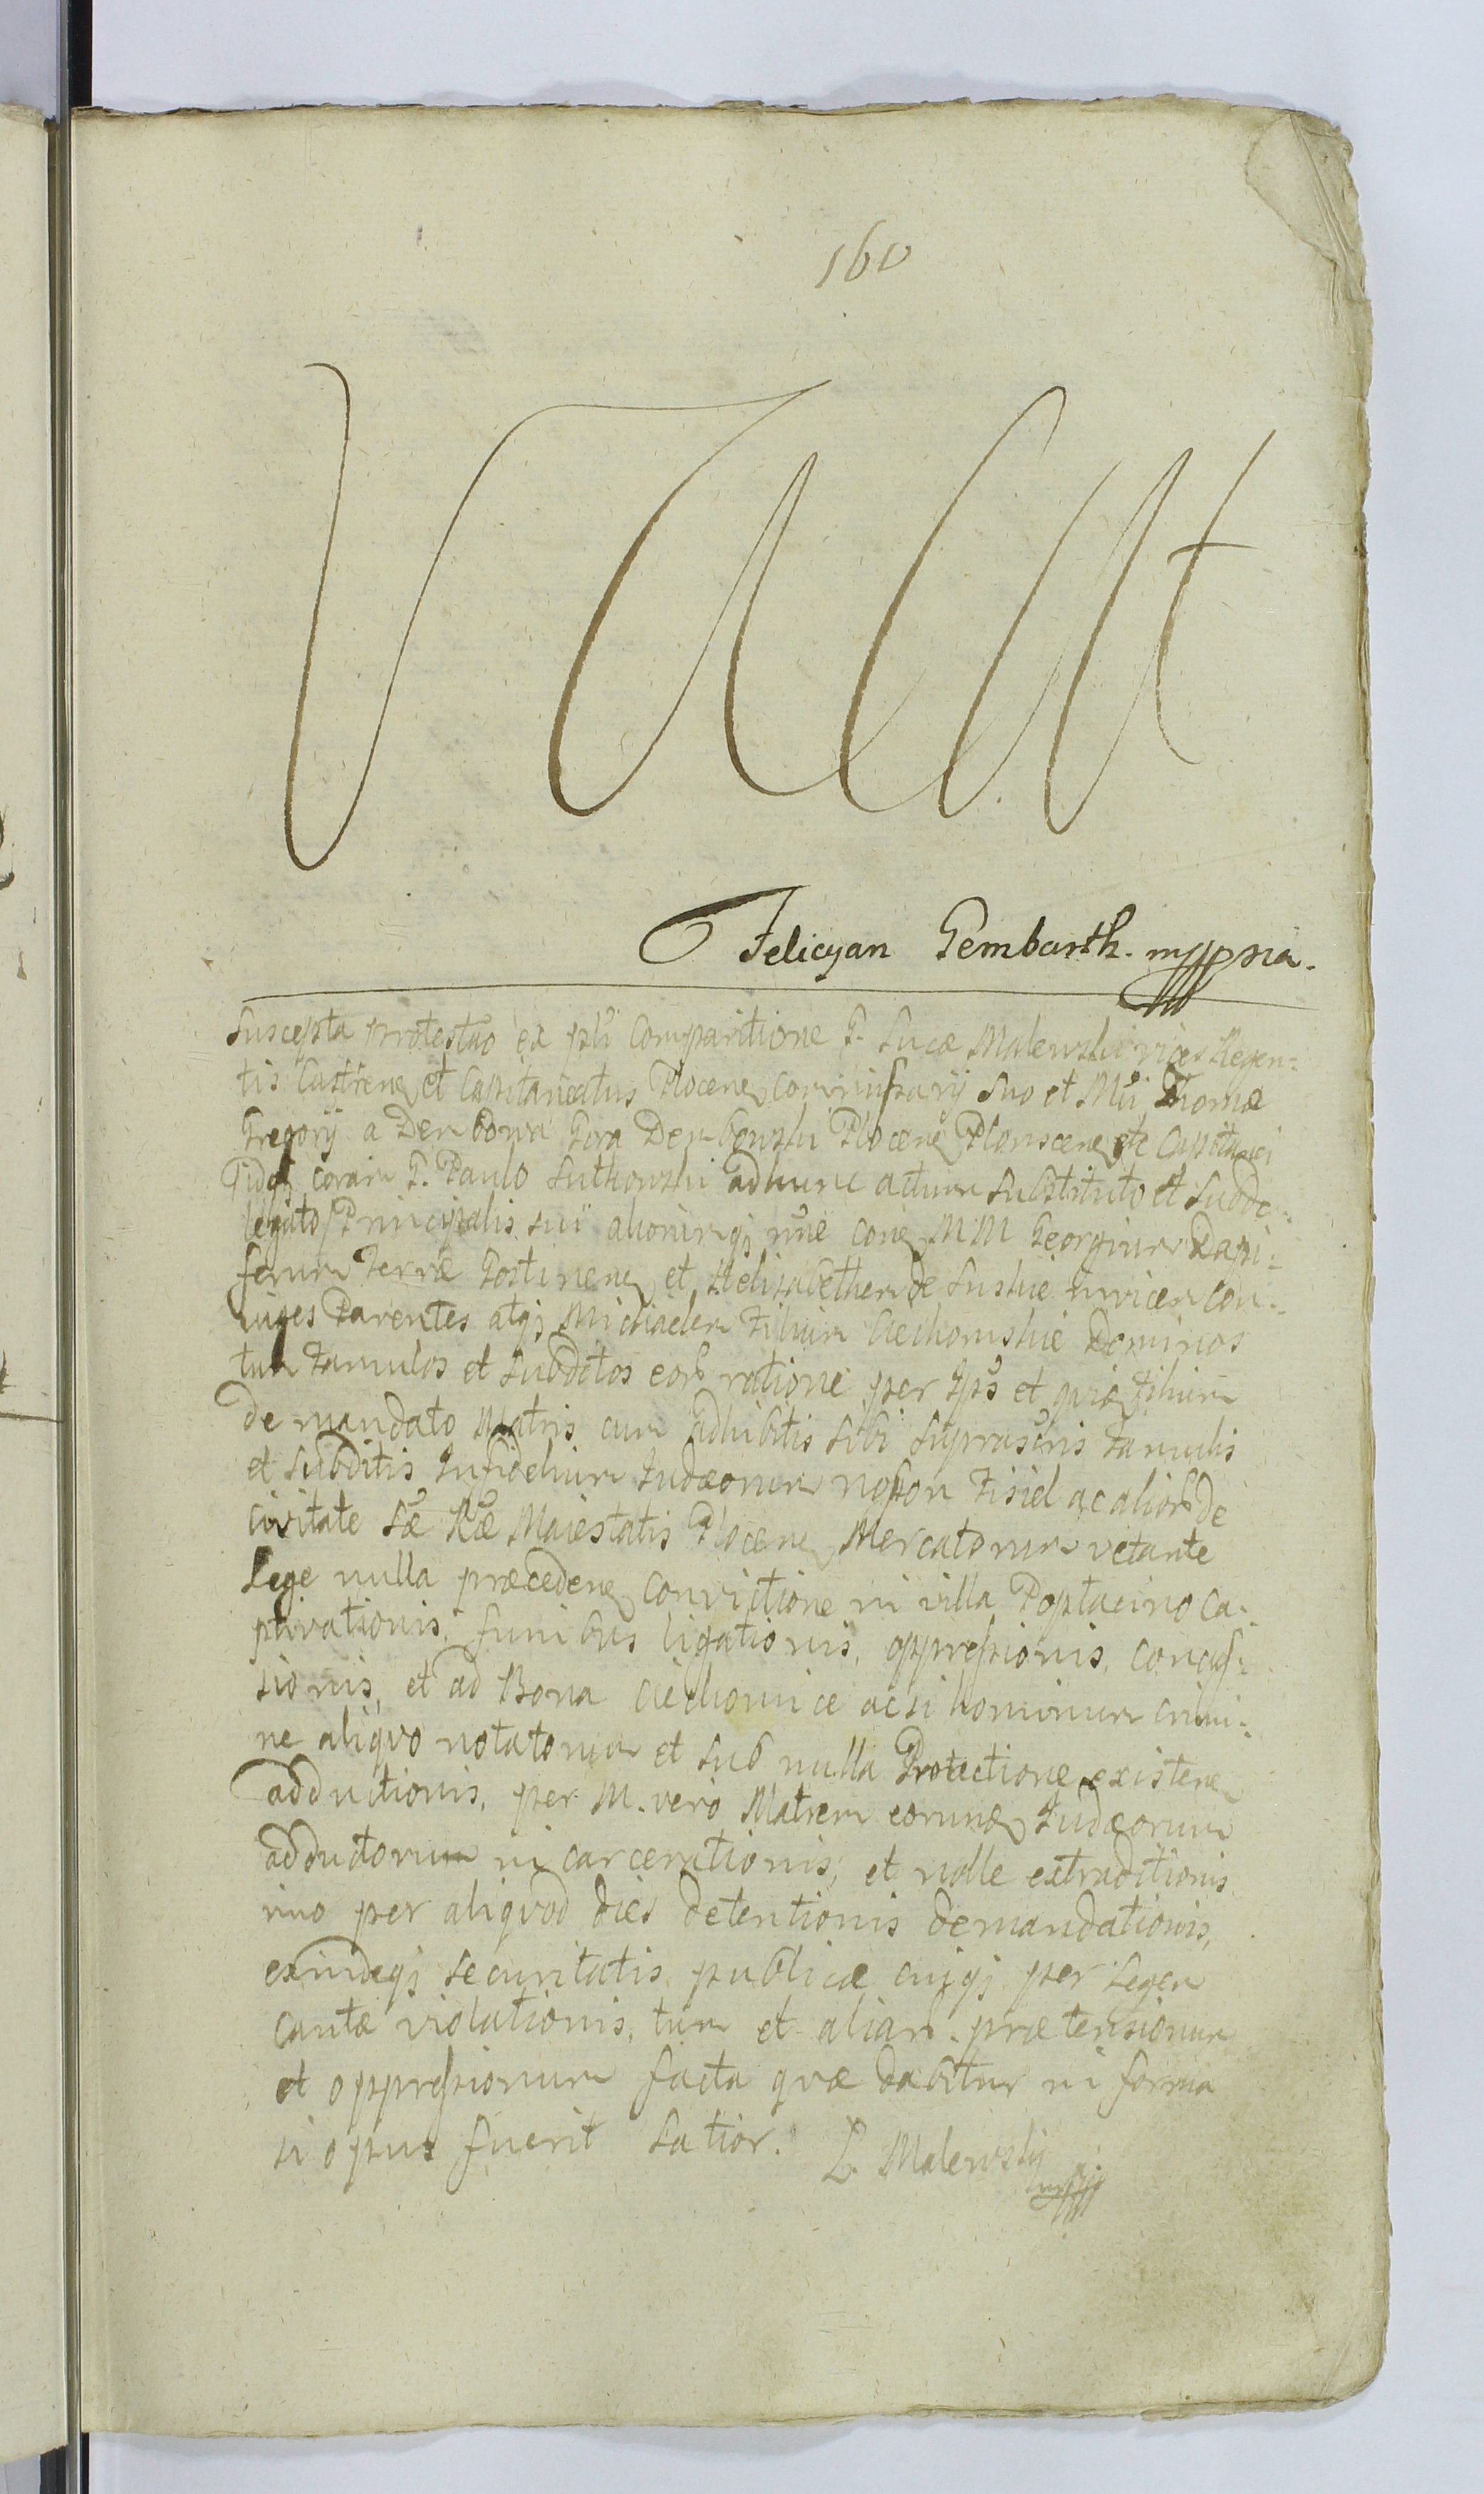 160
Vacat
Felicyan Gembarth. mppria.
Suscepta protestao ex psti Comparitione G. Lucæ Malewski vices Regen-
tis Castrens et Capitaneatus Plocens Commissarij suo et Mci Thomæ
Gregorij a Dembowa Gora Dembowski Plocens Plonscens etc Capitanei
coram G. Paulo Sutkowski ad hunc actum Substituto et Subde-
legato Principalis sui aliorumqz nne cone MM Georgium Dapi-
ferum Terræ Gostinens et Helisabetham de invicem Con-
iuges Parentes atqz Michaelem Filium Ciechomskie Dominos
tum Famulos et Subditos eorb ratione per Ips et Filium
de mandato Matris cum adhibitis sibi suprascris Famulis
et Subditis Infidelium Judæorum Fisiel ac aliorb de
civitate Sæ Ræ Maiestatis Plocens Mercatorum vetante
Lege nulla præcedens convictione in villa Poptacino Ca-
ptivationis, funibus ligationis, oppressionis, concus-
sionis, et ad Bona Ciechomice acsi hominum crimi-
ne aliquo notatorum et sub nulla Protectione existens
adductionis, per M. vero Matrem eorund Judæorum
adductorum incarcerationis, et nolle extraditionis
imo per aliquod dies detentionis demandationis,
exindeqz securitatis publicæ cuiqz per Legem
cautæ violationis, tum et aliarb prætensionum
et oppressionum facta quæ dabitur in forma
si opus fuerit Latior. L. Malewski mpp